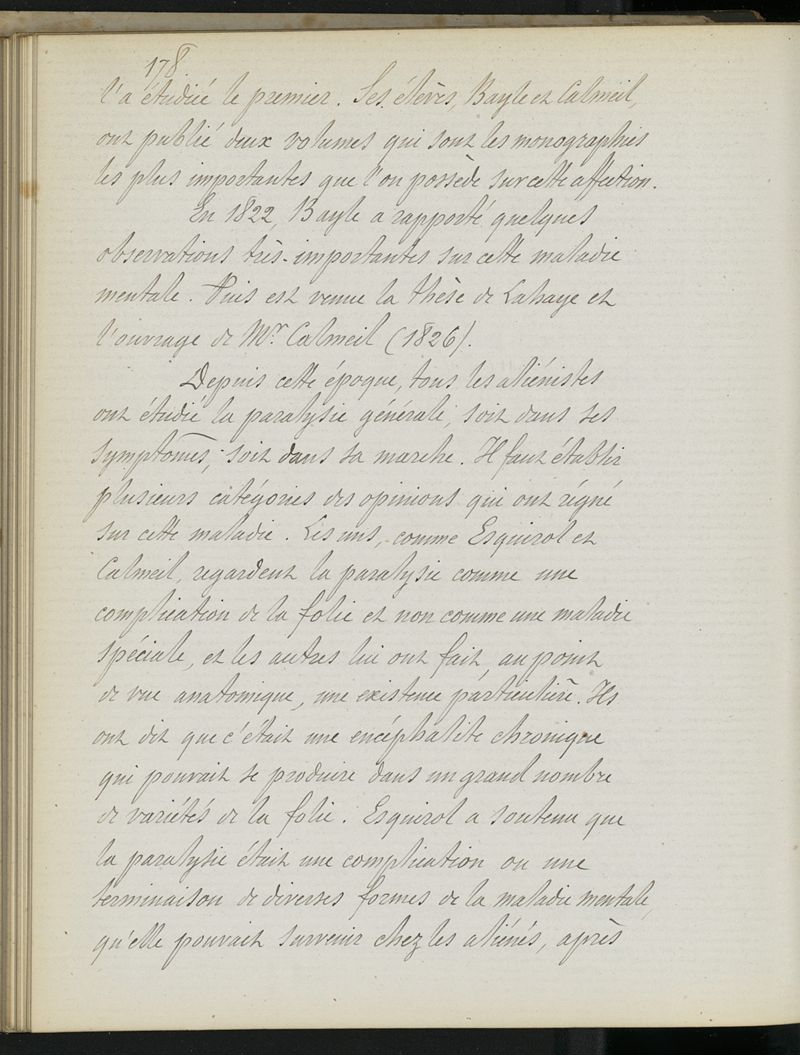 178
l'a étudiée le premier. Ses élèves, Bayle et Calmeil,
ont publié deux volumes qui sont les monographies
les plus importantes que l'on possède sur cette affection.
En 1822, Bayle a rapporté quelques
observations très-importantes sur cette maladie
mentale. Puis est venue la thèse de Lahaye et
l'ouvrage de Mr. Calmeil (1826).
Depuis cette époque, tous les aliénistes
ont étudié la paralysie générale, soit dans ses
symptômes, soit dans sa marche. Il faut établir
plusieurs catégories des opinions qui ont régné
sur cette maladie. Les uns, comme Esquirol et
Calmeil, regardent la paralysie comme une
complication de la folie et non comme une maladie
spéciale, et les autres lui ont fait, au point
de vue anatomique, une existence particulière. Ils
ont dit que c'était une encéphalite chronique
qui pouvait se produire dans un grand nombre
de variétés de la folie. Esquirol a soutenu que
la paralysie était une complication ou une
terminaison de diverses formes de la maladie mentale,
qu'elle pouvait survenir chez les aliénés, après